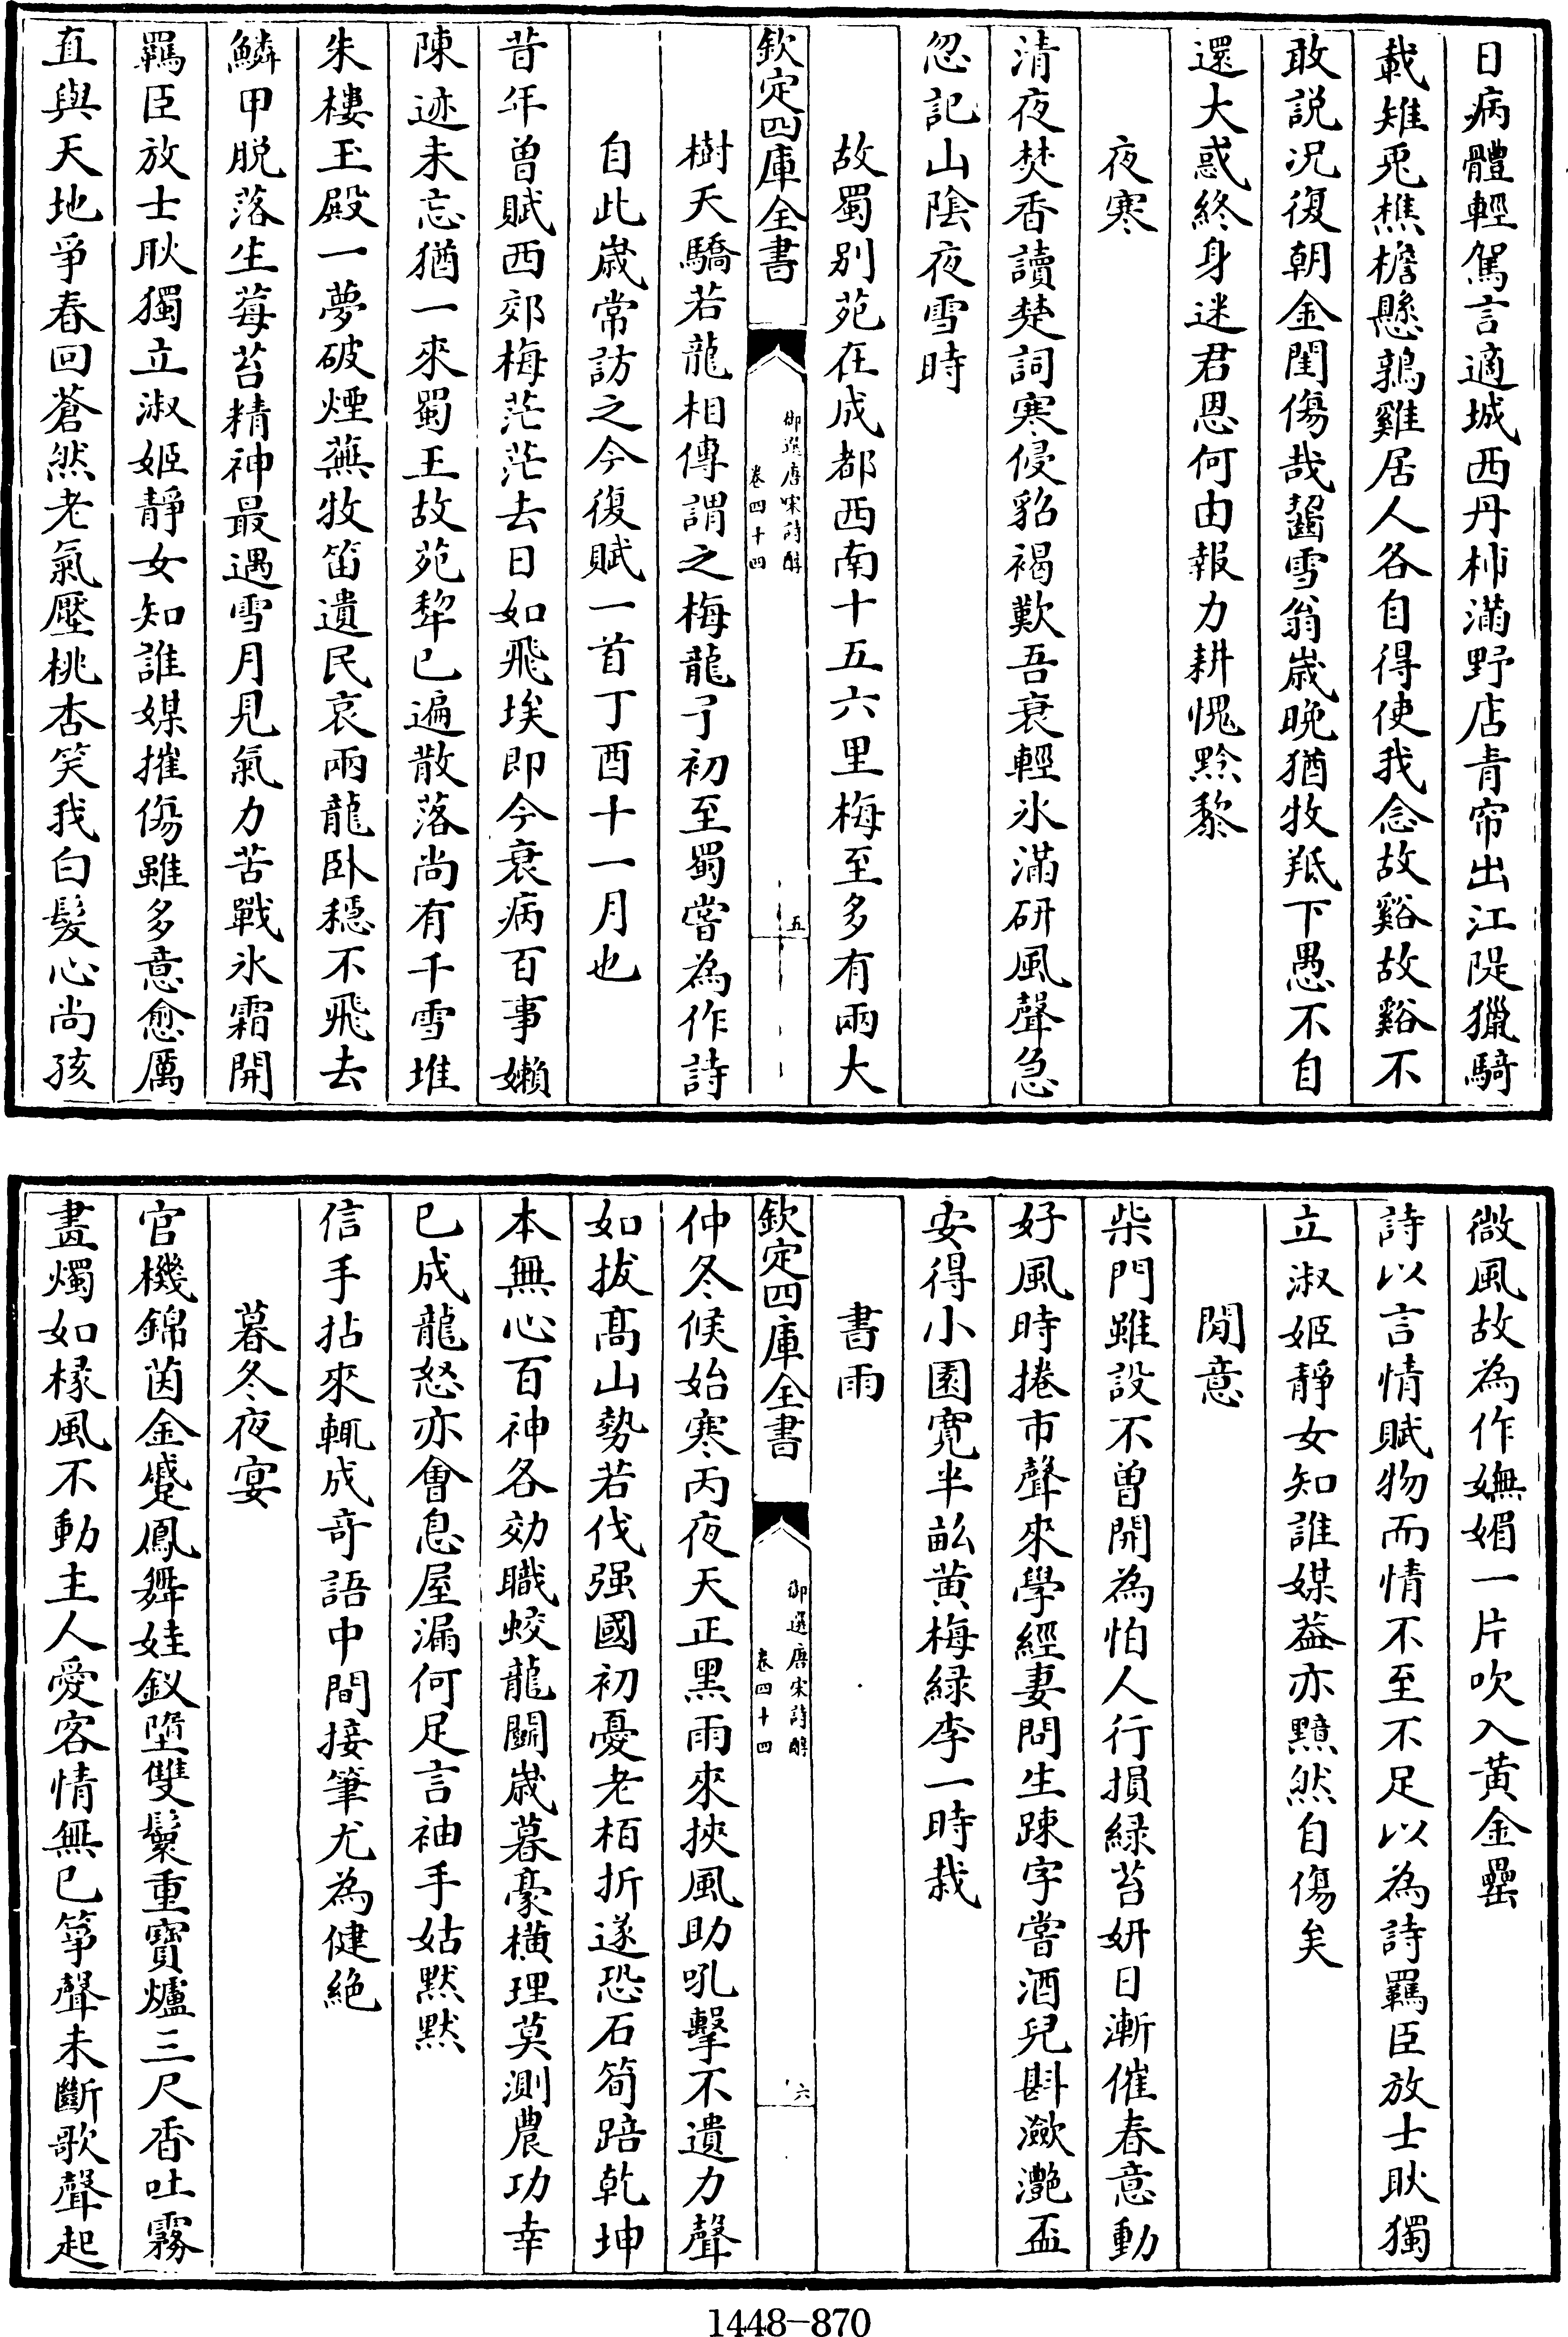 日病體輕駕言適城西丹柿滿野店青帘出江隄獵騎
載雉兎樵檐懸鶉雞居人各自得使我念故谿故谿不
敢說況復朝金閨傷哉齧雪翁歲晚猶牧羝下愚不自
還大惑終身迷君恩何由報力耕愧黔黎
夜寒
清夜焚香讀楚詞寒侵貂褐歎吾衰輕氷滿研風聲急
忽記山陰夜雪時
故蜀別苑在成都西南十五六里梅至多有兩大
欽定四庫全書
御選唐宋詩醇
卷四十四
五
樹夭驕若龍相傳謂之梅龍予初至蜀嘗為作詩
自此歲常訪之今復賦一首丁酉十一月也
昔年曾賦西郊梅茫茫去日如飛埃即今衰病百事嬾
陳迹未忘猶一來蜀王故苑犂已遍散落尚有千雪堆
朱樓玉殿一夢破煙蕪牧笛遺民哀兩龍卧穩不飛去
鱗甲脱落生莓苔精神最遇雪月見氣力苦戰氷霜開
羈臣放士耿獨立淑姬靜女知誰媒摧傷雖多意愈厲
直與天地爭春回蒼然老氣壓桃杏笑我白髮心尚孩
微風故為作嫵媚一片吹入黄金罍
詩以言情賦物而情不至不足以為詩羈臣放士耿獨
立淑姬靜女知誰媒益亦黯然自傷矣
閒意
柴門雖設不曾開為怕人行損緑苔妍日漸催春意動
好風時捲市聲來學經妻問生踈字嘗酒兒斟瀲灔盃
安得小園寛半畝黄梅緑李一時栽
書雨
欽定四庫全書
御選唐宋詩醇
卷四十四
六
仲冬候始寒丙夜天正黑雨來挾風助吼擊不遺力聲
如拔髙山勢若伐强國初憂老栢折遂恐石筍踣乾坤
本無心百神各効職蛟龍鬭歲暮豪横理莫測農功幸
已成龍怒亦會息屋漏何足言袖手姑默默
信手拈來輒成竒語中間接筆尤為健絶
暮冬夜宴
官機錦茵金蹙鳳舞娃釵墮雙鬟重寶爐三尺香吐霧
畫燭如椽風不動主人愛客情無已箏聲未斷歌聲起
1448-870